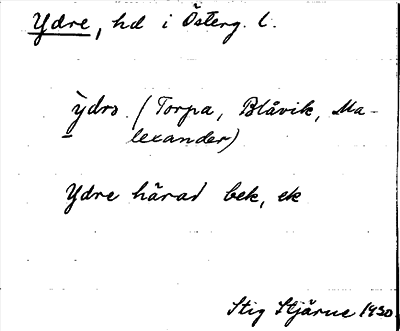 Ydre, hd i Österg. l.
ỳdrɔ (Torpa, Blåvik, Ma-
lexander)
Ydre härad bek, ek
Stig Stjärne 1930